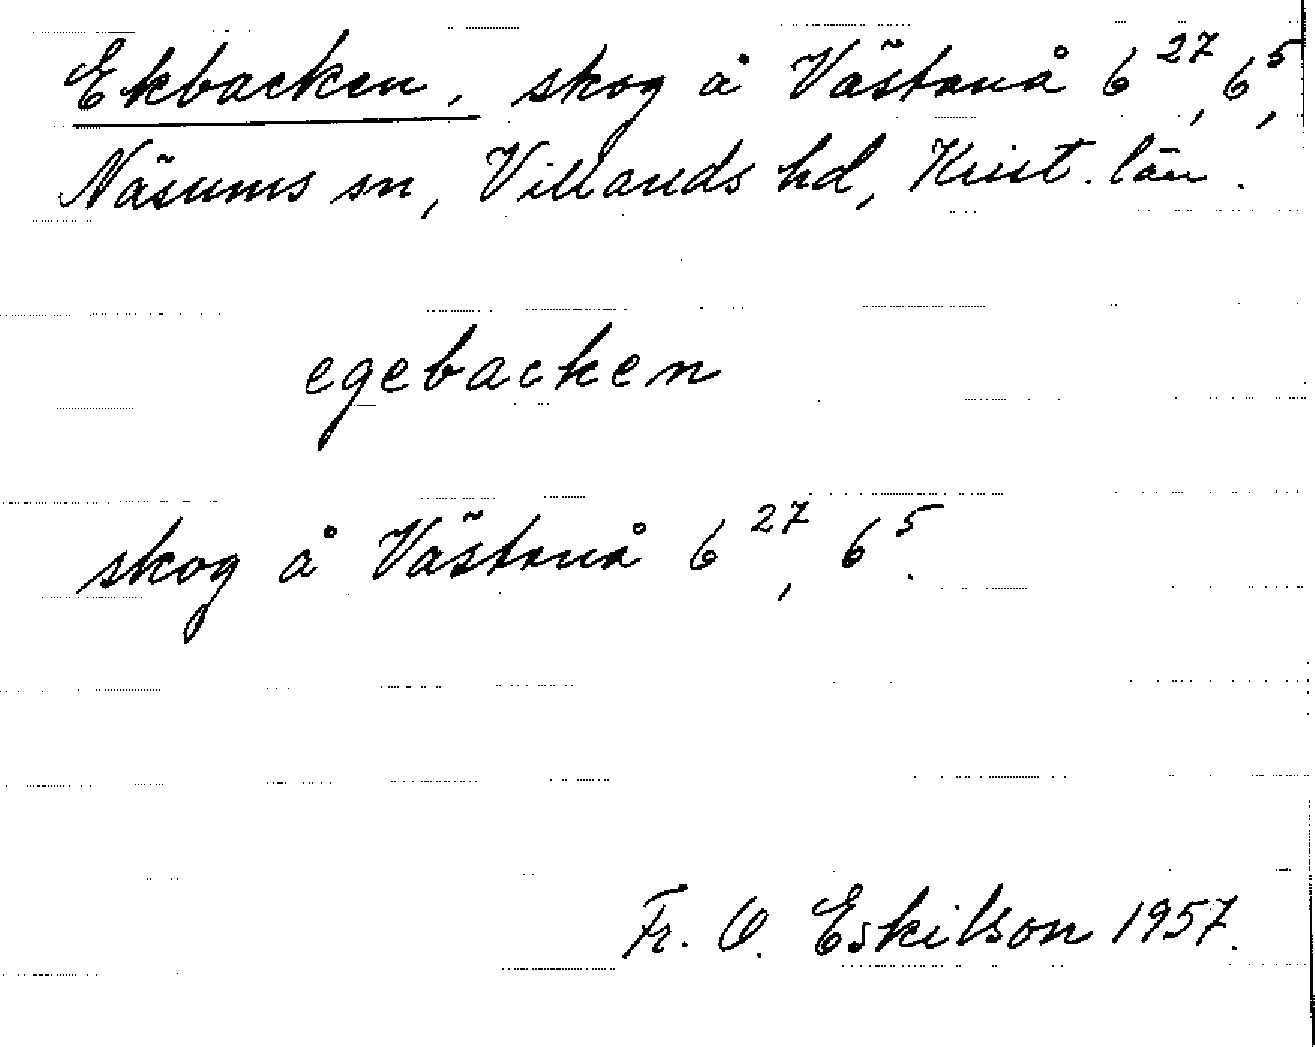 Ekbacken, skog å Västanå 6²⁷, 6⁵,
Näsums sn, Villands hd, Krist. län.
egebacken
skog å Västanå 6²⁷, 6⁵.
Fr. O. Eskilson 1957.